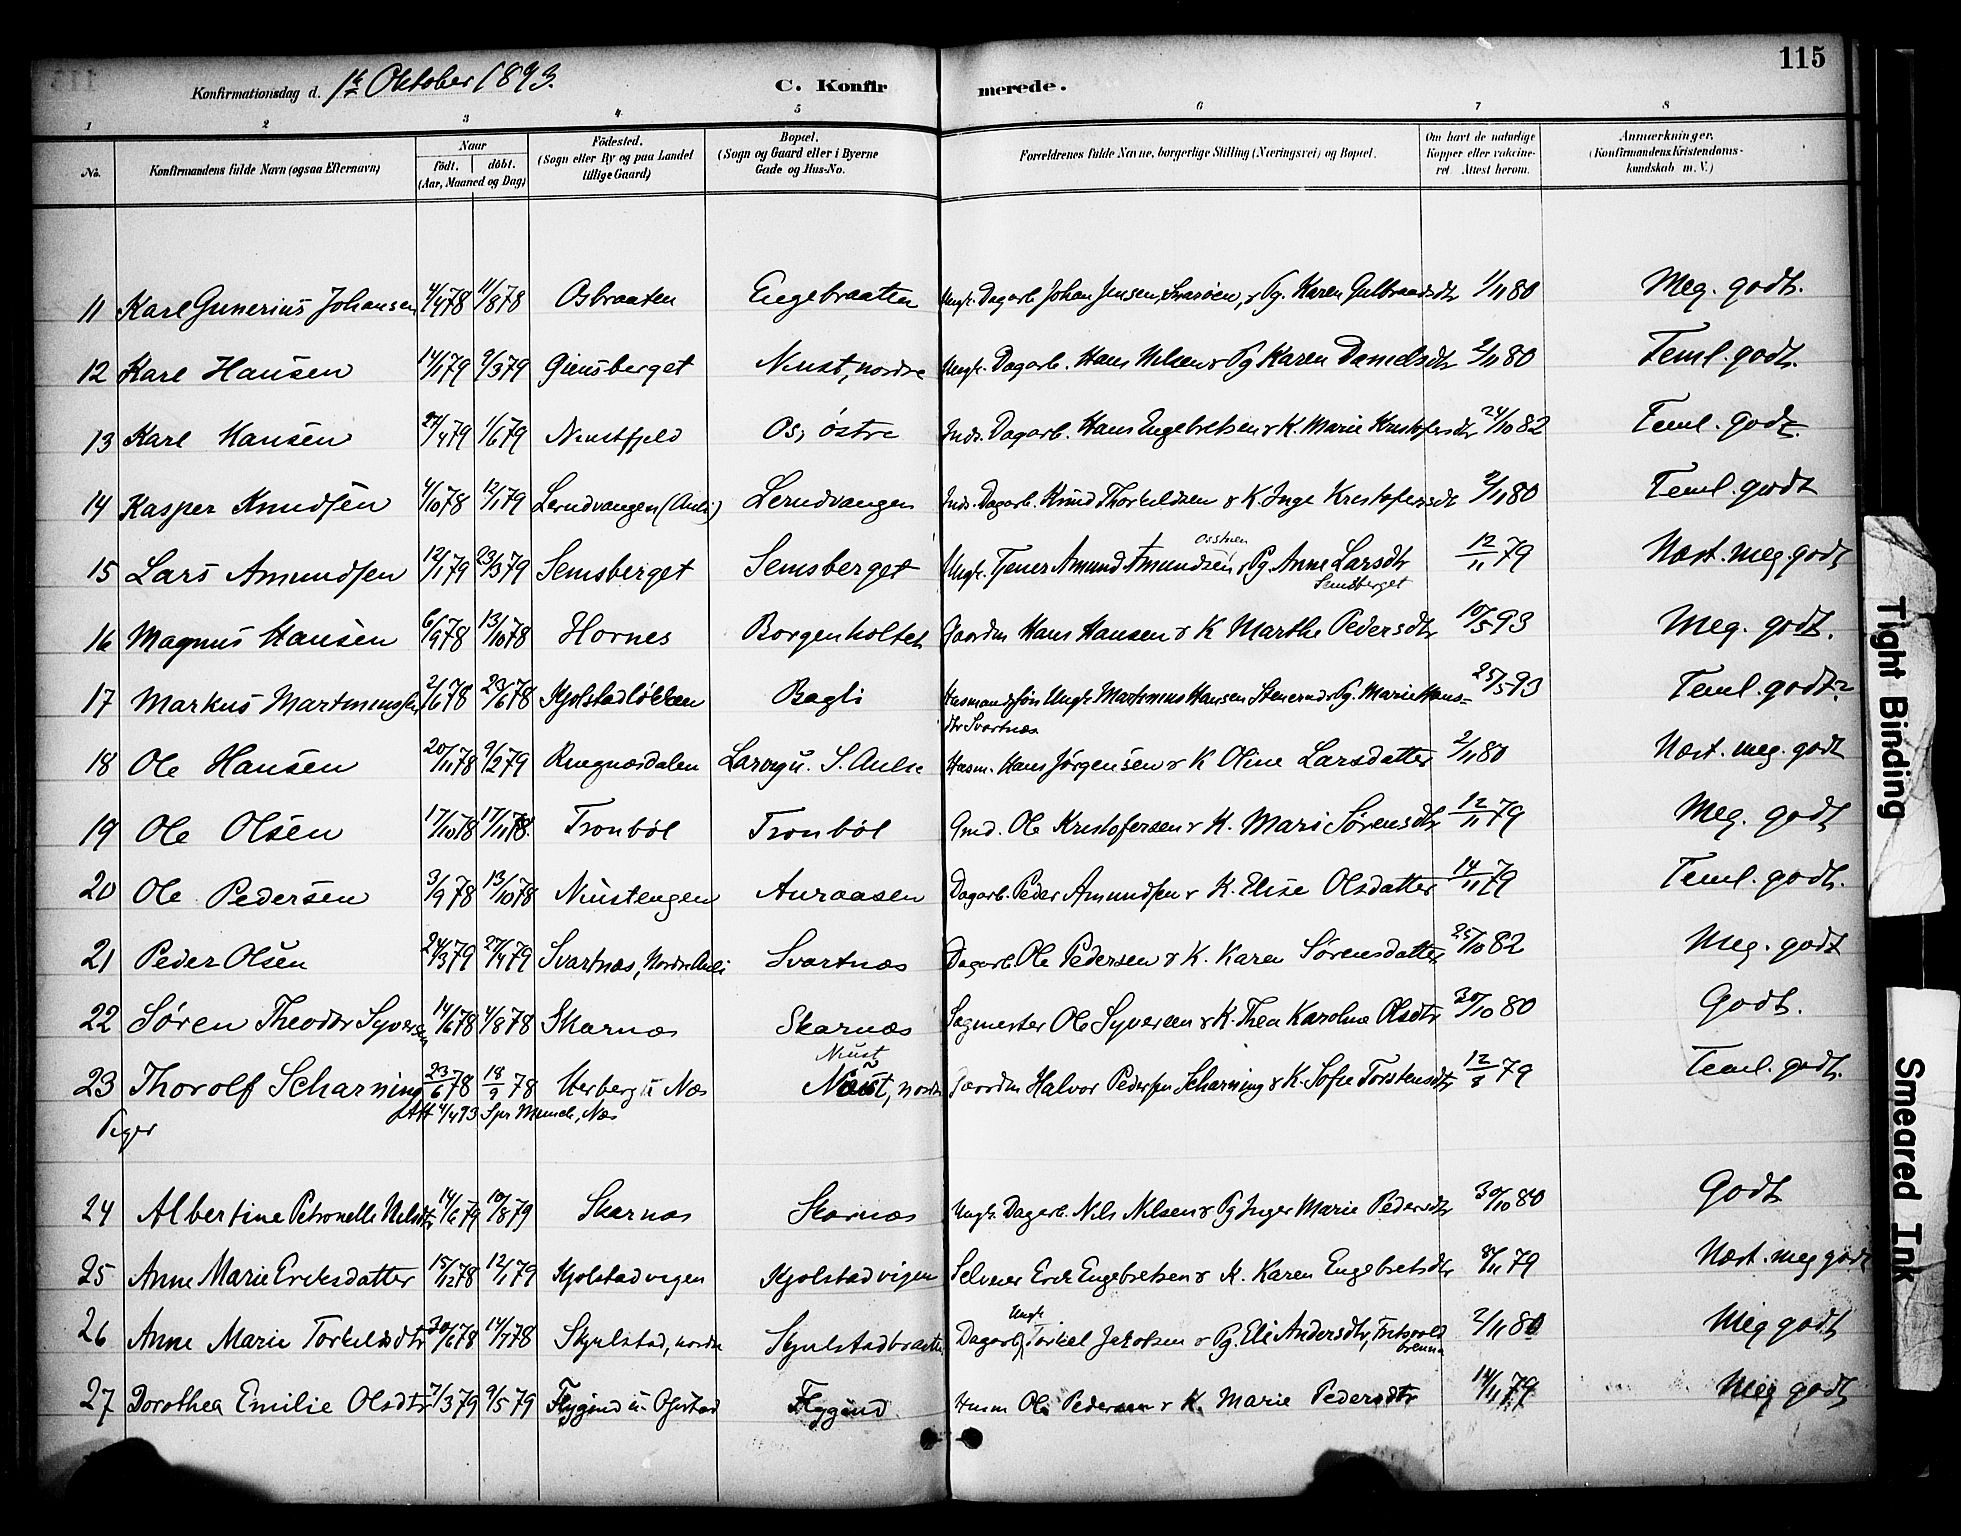 115
Konfirmationsdag d. 1ste Oktober 1893.
C. Konfirmerede.
1 2 3 4 5 6 7 8
No.
Konfirmandens fulde Navn (ogsaa Efternavn)
Naar
født. døbt.
(Aar, Maaned og Dag)
Fødested.
(Sogn eller By og paa Landet
tillige Gaard)
Bopæl.
(Sogn og Gaard eller i Byerne
Gade og Hus-No.
Forældrenes fulde Navne, borgerlige Stilling (Næringsvei) og Bopæl.
Om havt de naturlige
Kopper eller vakcine-
ret. Attest herom.
Anmærkninger.
(Konfirmandens Kristendoms-
kundskab m. V.)
11 Karl Gunerius Johansen 4/4 78 11/8 78 Osbraaten Engebraaten Ungk. Dagarb. Johan Jensen, Svarøen, & Pg. Karen Gulbrandsdtr 1/11 80 Meg. godt.
12 Karl Hansen 14/1 79 9/3 79 Giensberget Niust, nordre Ungk. Dagarb. Hans Nilsen & Pg Karen Danielsdtr 2/11 80 Teml. godt.
13 Karl Hansen 27/4 79 1/6 79 Niustfjeld Os, östre Inds. Dagarb. Hans Engebretsen & K. Marie Kristofersdtr 24/10 82 Teml. godt.
14 Kasper Knudsen 4/10 78 12/1 79 Lerudvangen (Auli) Lerudvangen Inds. Dagarb. Knud Thorkildsen & K. Inge Kristofersdt 2/11 80 Teml. godt
15 Lars Amundsen 12/1 79 23/3 79 Semsberget Semsberget Ungk. Tjener Amund Amundsen Osstuen & Pg. Anne Larsdtr Semsberget 12/11 79 Næst. meg. godt
16 Magnus Hansen 6/9 78 13/10 78 Hornes Borgenholtet Gaardm Hans Hansen & K Marthe Pedersdtr 10/5 93 Meg. godt.
17 Markus Martinussen 2/6 78 23/6 78 Kjolstadløkken Bagli Husmandssøn Ungk Martinus Hansen Stenerud & Pg. Marie Hans-
dtr Svartnæs 25/5 93 Teml. godt
18 Ole Hansen 20/11 78 9/2 79 Ringnæsdalen S. Aulie Husm. Hans Jørgensen & K Oline Larsdatter 2/11 80 Næst. meg. godt
19 Ole Olsen 17/10 78 17/11 78 Tronbøl Tronbøl Gmd. Ole Kristofersen & K. Mari Sørensdtr 12/11 79 Meg. godt
20 Ole Pedersen 3/9 78 13/10 78 Niustengen Auraasen Dagarb. Peder Amundsen & K. Elise Olsdatter 14/11 79 Teml. godt.
21 Peder Olsen 24/3 79 27/4 79 Svartnæs, Nordre Auli Svartnæs Dagarb. Ole Pedersen & K. Karen Sørensdatter 25/10 82 Meg. godt
22 Søren Theodor Syversen 14/6 78 4/8 78 Skarnæs Skarnæs Sagmester Ole Syversen & K. Thea Karoline Olsdtr 30/10 80 Godt.
23 Thorolf Scharning 23/6 78 18/9 78 Herberg u Næs Niust Niust, nordre Gaardm Halvor Pedersen Scharning & K. Sofie Torstensdtr 12/8 79 Teml. godt.
Att 4/4 93 Spr Munch, Næs
Piger
24 Albertine Petronelle Nilsdtr 14/6 79 10/8 79 Skarnæs Skarnæs Ungk. Dagarb. Nils Nilsen & Pg Inger Marie Pedersdtr 30/10 80 Godt
25 Anne Marie Eriksdatter 15/12 78 12/1 79 Kjolstadvigen Kjolstadvigen Selveier Erik Engebretsen & K. Karen Engebretsdtr 8/11 79 Næst. meg godt
26 Anne Marie Torkildsdtr 30/6 78 14/7 78 Skjulstad, nordre Skjulstadbraaten Dagarb. Ungk Torkel Jakobsen & Pg. Eli Andersdtr, Fritsvold
brenna 2/11 80 Meg godt
27 Dorothea Emilie Olsdtr 7/3 79 9/5 79 Flygind u. Ofstad Flygind Husm Ole Pedersen & K. Marie Pedersdtr 14/11 79 Meg godt
Tight Binding
Smeared Ink